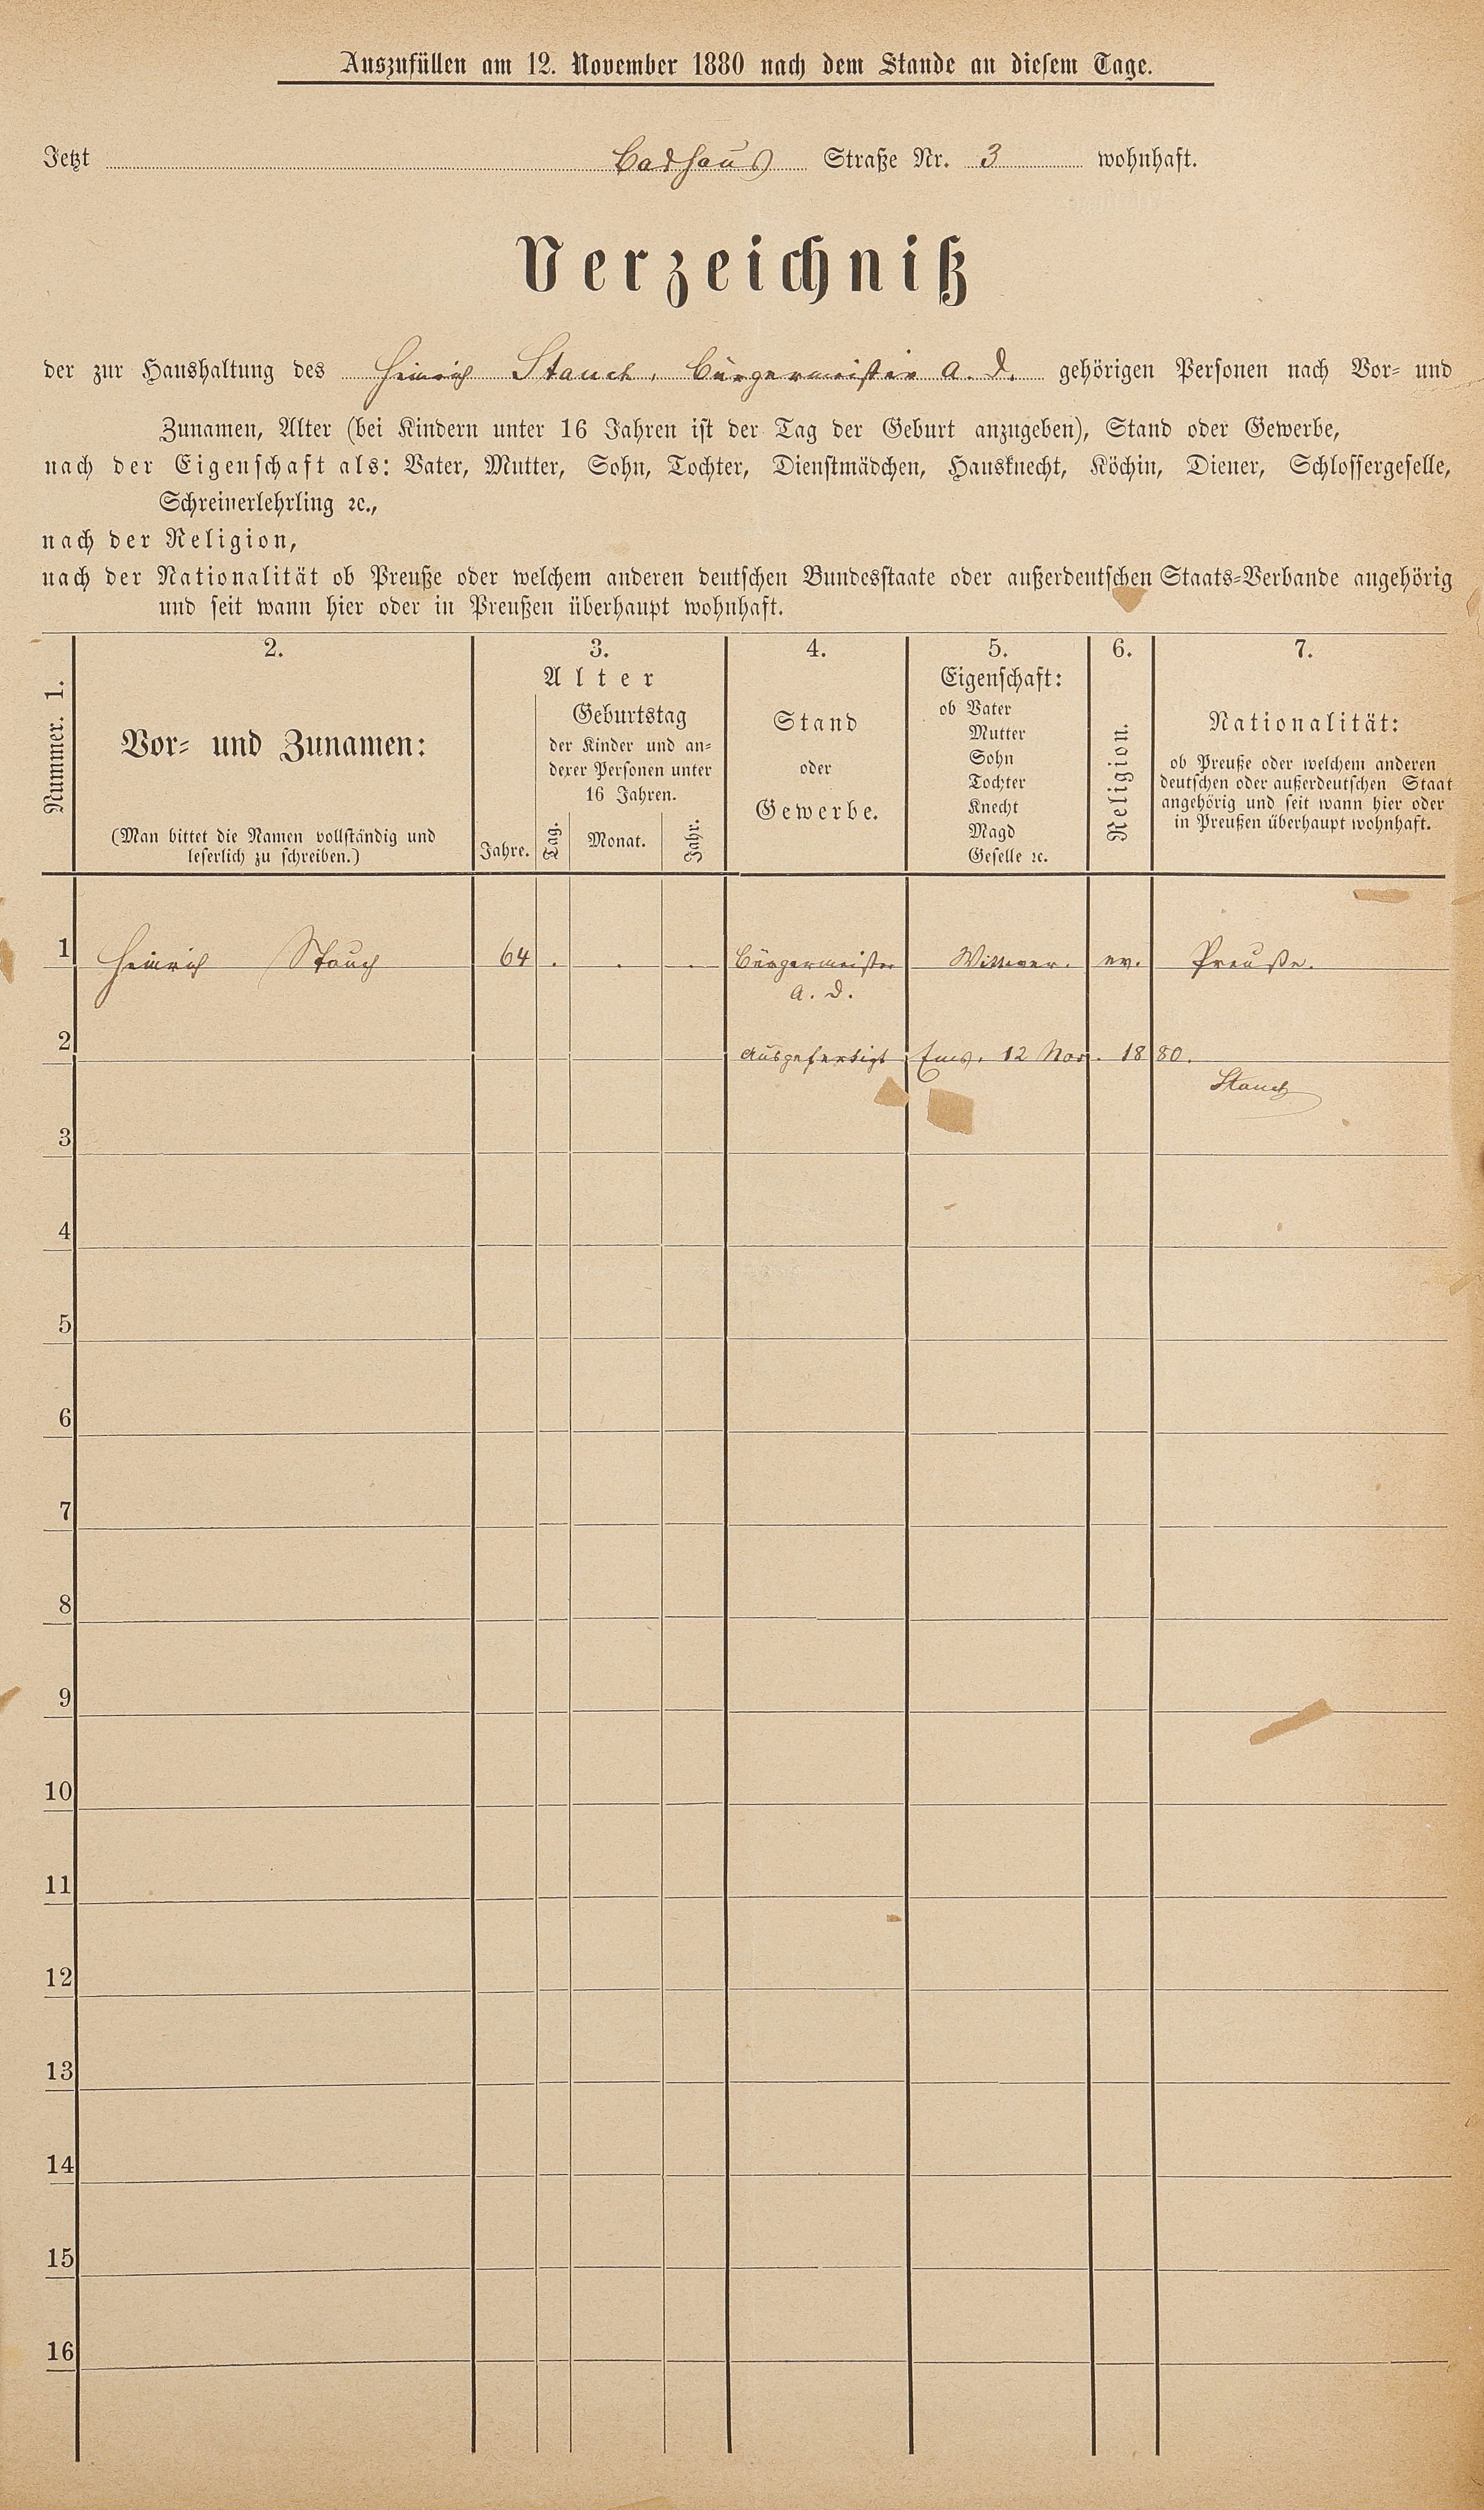 Auszufüllen am 12. November 1880 nach dem Stande an diesem Tage.
Jetzt Badhaus Straße Nr. 3 wohnhaft.
Verzeichniß
der zur Haushaltung des Heinrich Stauch, Bürgermeister a. D. gehörigen Personen nach Vor- und
Zunamen, Alter (bei Kindern unter 16 Jahren ist der Tag der Geburt anzugeben), Stand oder Gewerbe,
nach der Eigenschaft als: Vater, Mutter, Sohn, Tochter, Dienstmädchen, Hausknecht, Köchin, Diener, Schlossergeselle,
Schreinerlehrling ꝛc.,
nach der Religion,
nach der Nationalität ob Preuße oder welchem anderen deutschen Bundesstaate oder außerdeutschen Staats-Verbande angehörig
und seit wann hier oder in Preußen überhaupt wohnhaft.
Nummer. 1.
2.
Vor- und Zunamen:
(Man bittet die Namen vollständig und
leserlich zu schreiben.)
3.
Alter
Jahre.
Geburtstag
der Kinder und an-
derer Personen unter
16 Jahren.
Tag. Monat. Jahr.
4.
Stand
oder
Gewerbe.
5.
Eigenschaft:
ob Vater
Mutter
Sohn
Tochter
Knecht
Magd
Geselle ꝛc.
6.
Religion.
7.
Nationalität:
ob Preuße oder welchem anderen
deutschen oder außerdeutschen Staat
angehörig und seit wann hier oder
in Preußen überhaupt wohnhaft.
1 Heinrich Stauch 64 . . . Bürgermeister Wittwer. ev. Preuße.
a. D.
2 Ausgefertigt Ems, 12 Nov. 1880.
Stauch
3
4
5
6
7
8
9
10
11
12
13
14
15
16